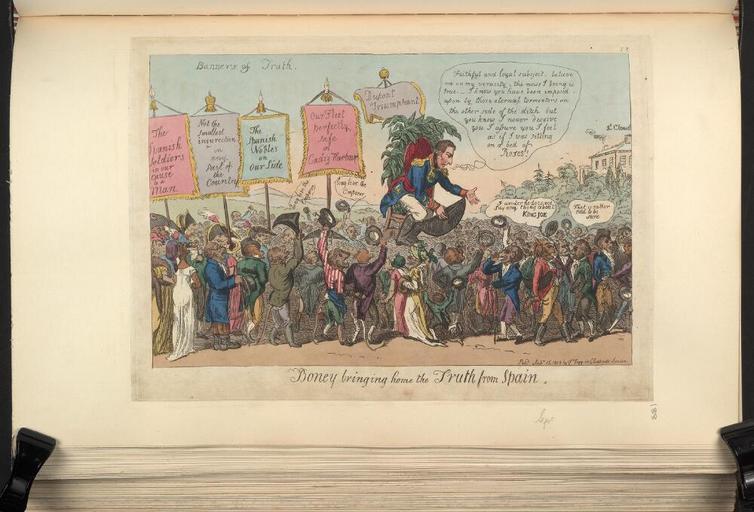 Banners of Truth.
The
Spanish
Soldiers
in our
cause
to a
Man
Not the
smallest
insurrection
in
any
Part of
the
Country
The
Spanish
Nobles
on
Our Side
Our Fleet
perfectly
safe
in
Cadiz Harbour
Dupont
Triumphant
Faithful and loyal subjects, believe
me on my veracity, the news I bring is
true — I know you have been imposed
upon by those eternal tormentors on
the other side of the ditch but
you know I never deceive
you I assure you I feel
as if I was sitting
on a bed of
Roses!
St Cloud
Long live the
Emperor
Long live the
Emperor
KING JOE
That is rather
to be
sure
Boney bringing home the Truth from Spain.
Sep